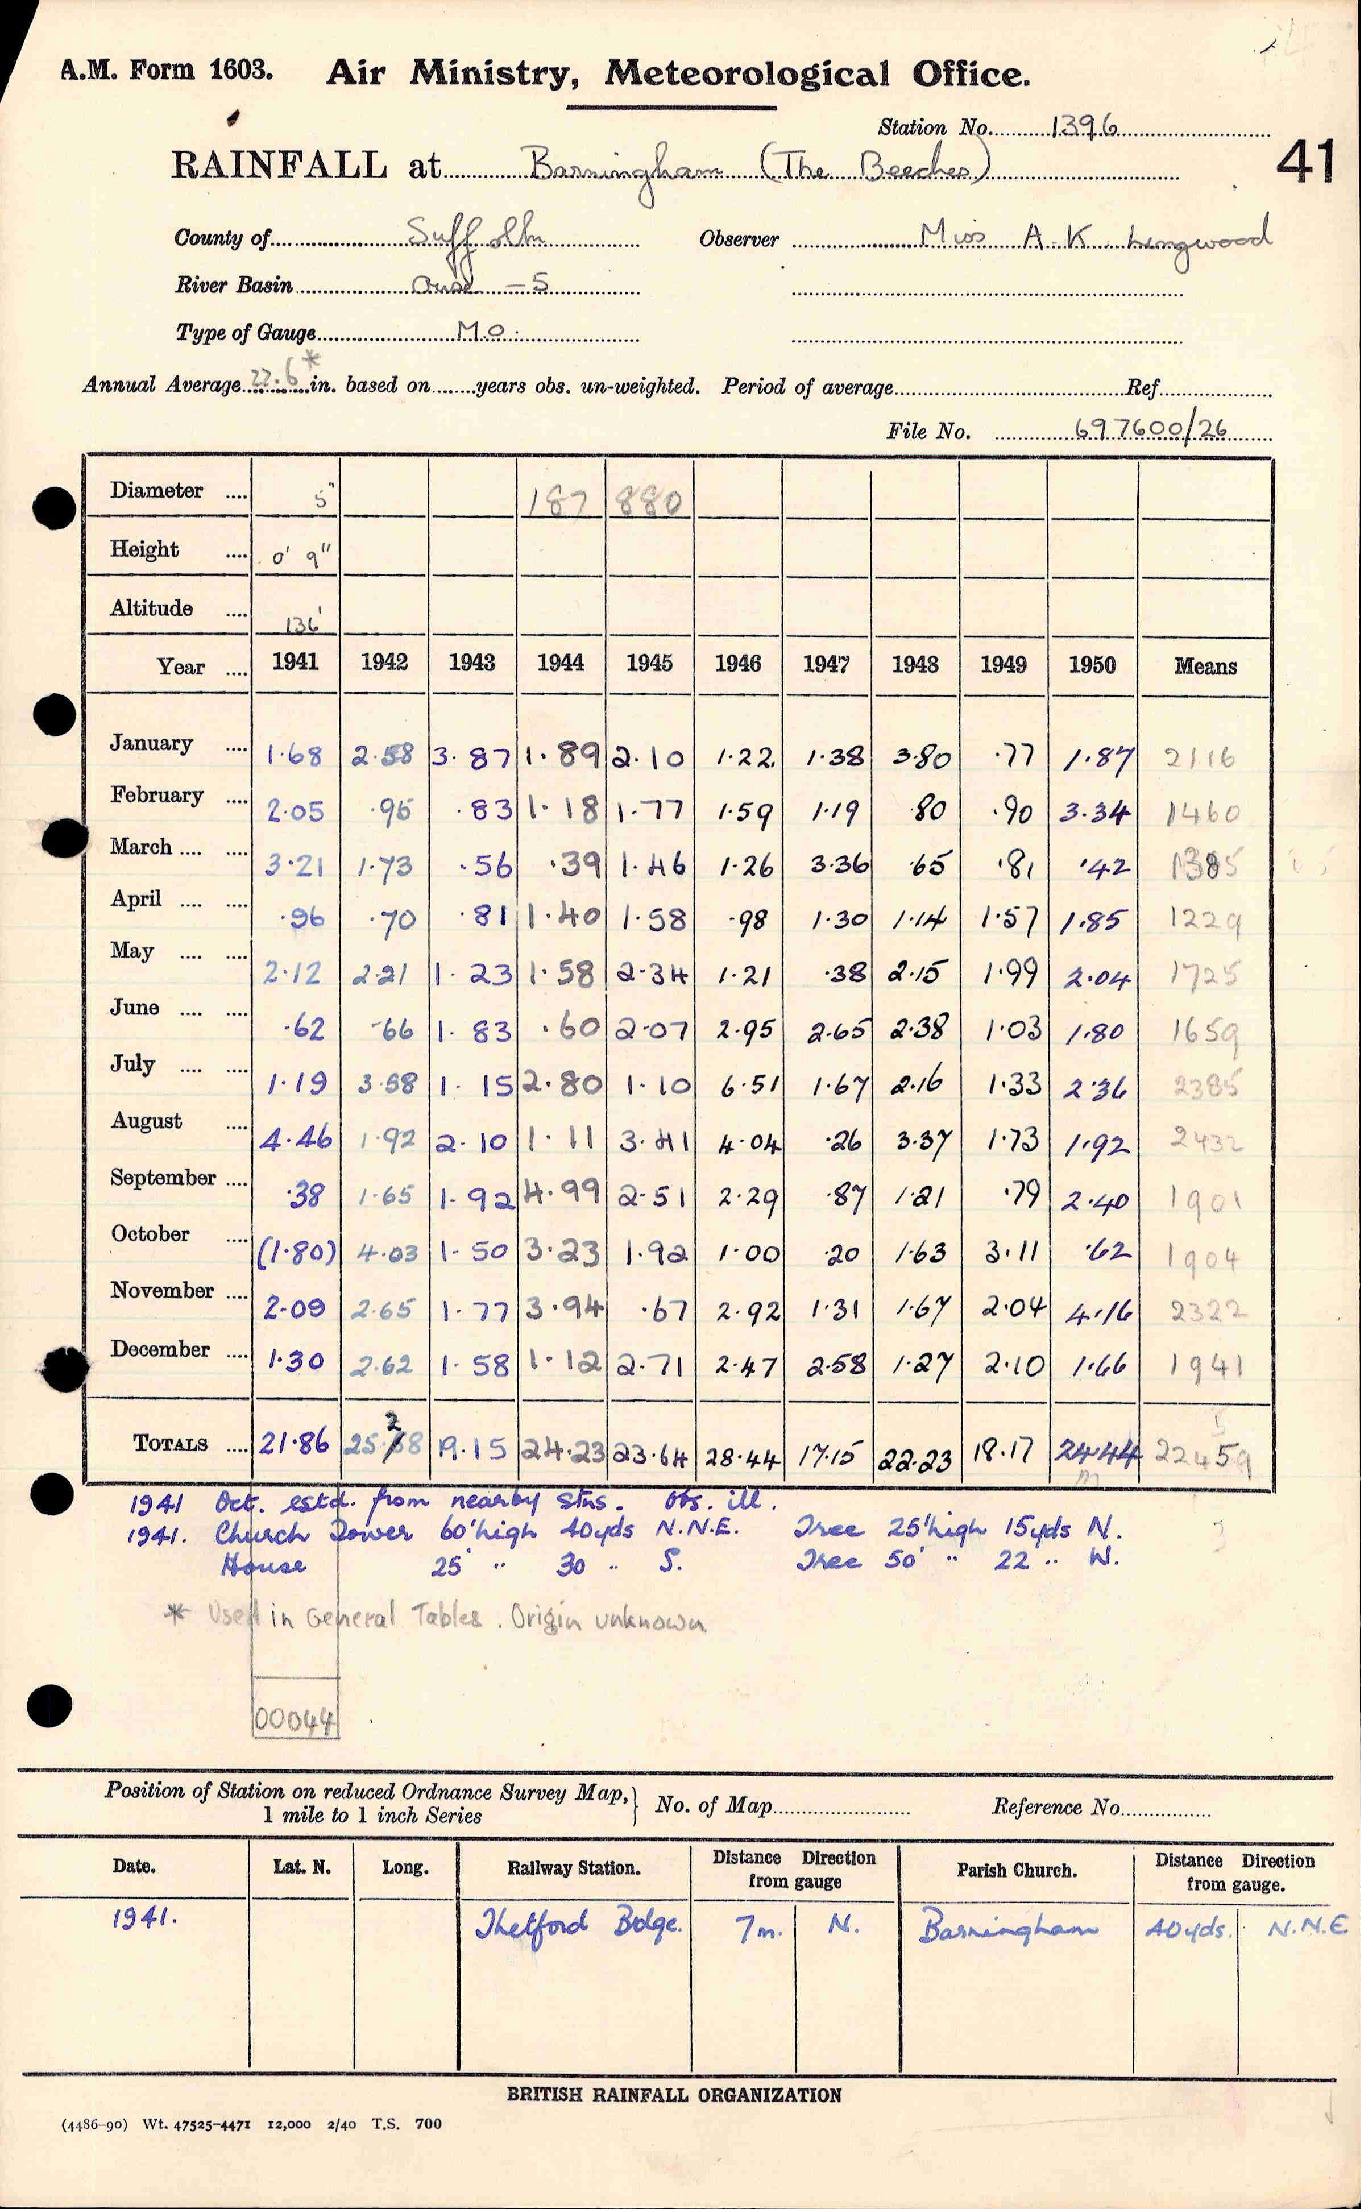 A.M. Form 1603. Air Ministry, Meteorological Office.
Station No. 1396
41
RAINFALL at Barningham (The Beeches)
County of Suffolk Observer Miss A. K. Lingwood
River Basin Ouse - 5
Type of Gauge M.O.
Annual Average 22.6* in. based on years obs. un-weighted. Period of average Ref
File No. 697600/26
Diameter .... 5" 187 880
Height .... 0' 9"
Altitude .... 136'
Year .... 1941 1942 1943 1944 1945 1946 1947 1948 1949 1950 Means
January .... 1.68 2.58 3.87 1.89 2.10 1.22 1.38 3.80 .77 1.87 2116
February .... 2.05 .95 .83 1.18 1.77 1.59 1.19 .80 .90 3.34 1460
March .... .... 3.21 1.73 .56 .39 1.46 1.26 3.36 .65 .81 .42 1385
April .... .... .96 .70 .81 1.40 1.58 .98 1.30 1.14 1.57 1.85 1229
May .... .... 2.12 2.21 1.23 1.58 2.34 1.21 .38 2.15 1.99 2.04 1725
June .... .... .62 .66 1.83 .60 2.07 2.95 2.65 2.38 1.03 1.80 1659
July .... .... 1.19 3.58 1.15 2.80 1.10 6.51 1.67 2.16 1.33 2.36 2385
August .... 4.46 1.92 2.10 1.11 3.41 4.04 .26 3.37 1.73 1.92 2432
September .... .38 1.65 1.92 4.99 2.51 2.29 .87 1.21 .79 2.40 1901
October .... (1.80) 4.03 1.50 3.23 1.92 1.00 .20 1.63 3.11 .62 1904
November .... 2.09 2.65 1.77 3.94 .67 2.92 1.31 1.67 2.04 4.16 2322
December .... 1.30 2.62 1.58 1.12 2.71 2.47 2.58 1.27 2.10 1.66 1941
TOTALS .... 21.86 25.28 19.15 24.23 23.64 28.44 17.15 22.23 18.17 24.44 22459
1941 Oct. estd. from nearby stns. Obs. ill.
1941. Church Tower 60' high 40yds N.N.E. Tree 25' high 15yds N.
House 25' " 30 " S. Tree 50' " 22 " W.
* Used in General Tables. Origin unknown
00044
Position of Station on reduced Ordnance Survey Map, 1 mile to 1 inch Series } No. of Map Reference No.
Date. Lat. N. Long. Railway Station. Distance Direction from gauge Parish Church. Distance Direction from gauge.
1941. Thetford Bdge. 7m. N. Barningham 40yds. N.N.E
BRITISH RAINFALL ORGANIZATION
(4486-90) Wt. 47525-4471 12,000 2/40 T.S. 700